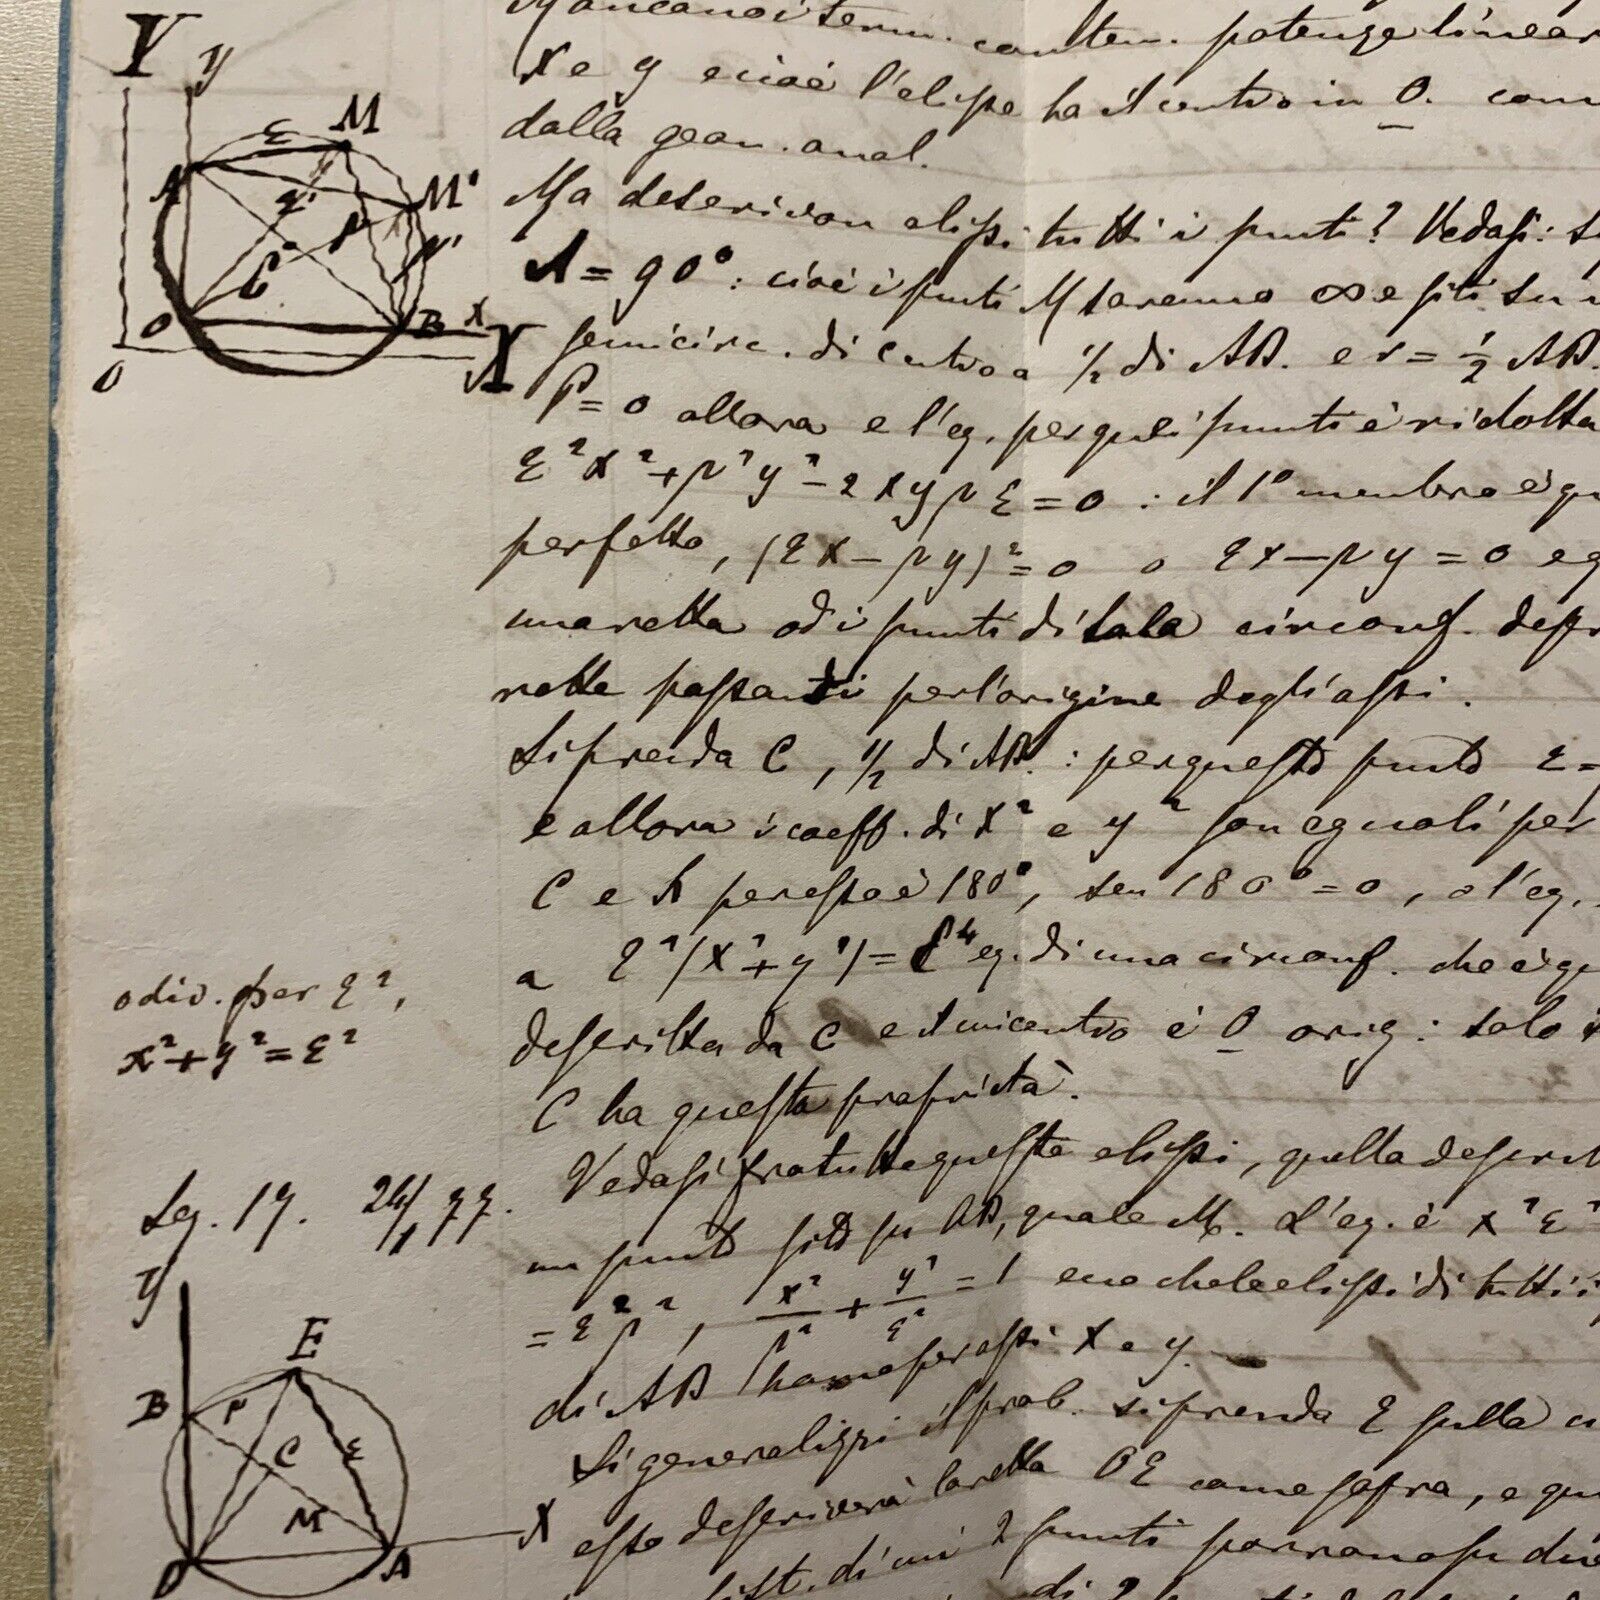 Mancano i term. conten. potenze linear
x e y e cioè l'elisse ha il centro in O. com
dalla geom. anal.
Ma descrivon elissi tutti i punti? Vedasi: s
M = 90°: cioè i punti M saranno ∞ e siti su u
semicirc. di centro a 1/2 di AB. e r = 1/2 AB.
P = 0 allora e l'eq. per quei punti è ridotta
q²x² + p²y² - 2xypq = 0 : il 1° membro è qu
perfetto, (qx - py)² = 0 o qx - py = 0 eq
una retta od i punti di tala circonf. descr
rette passanti per l'origine degli assi.
Si prenda C, 1/2 di AB. : per questo punto q =
e allora i coeff. di x² e y² son eguali per
C e per esso è 180°, sen 180° = 0, o l'eq.
a q²(x² + y²) = q⁴ eq. di una circonf. che è qu
descritta da C e il cui centro è O orig: solo i
C ha questa proprietà.
Vedasi fra tutte queste elissi, quella descrit
un punto sito su AB, quale M. L'eq. è x²q²
= q²p², x²/p² + y²/q² = 1 ecco che le elissi di tutti i
di AB hanno per assi x e y.
Si generalizzi il prob. si prenda E sulla ci
esso descriverà la retta OE come sopra, e qu
dist. di cui 2 punti porranosi du
di 2
Y
y
M
q
A
M'
q'
p
p'
C
O
B
x
X
O
o div. per q²,
x² + y² = q²
Leg. 19. 24/1 77.
y
E
B
p
C
q
M
O
A
X